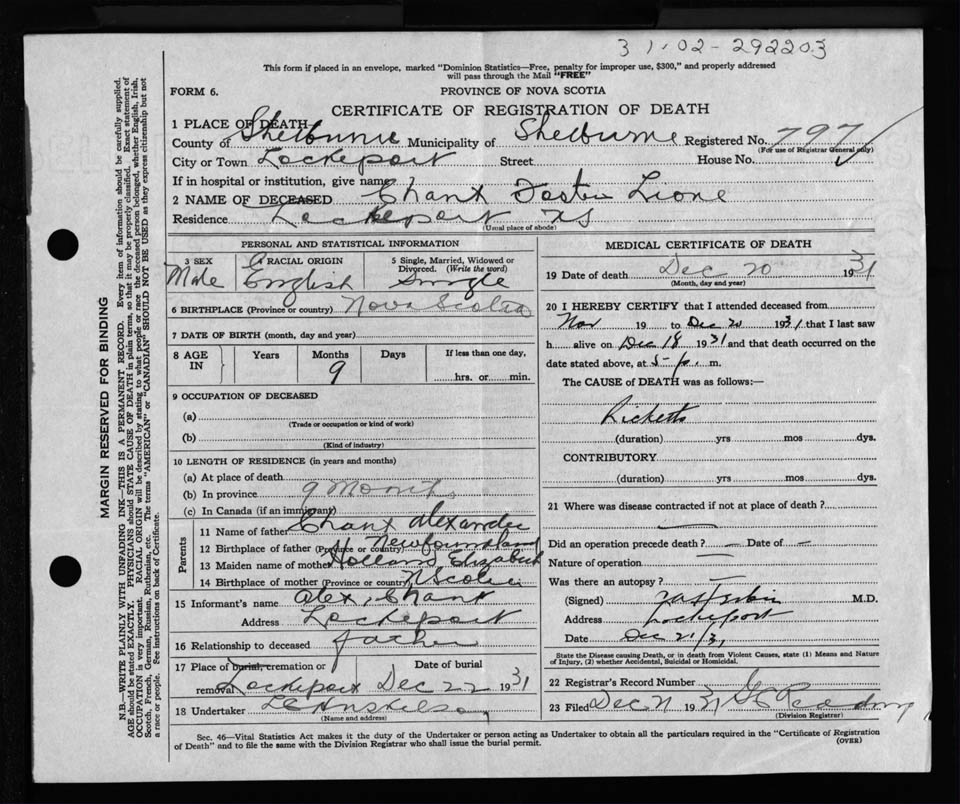 31-02-292203
This form if placed in an envelope, marked "Dominion Statistics—Free, penalty for improper use, $300," and properly addressed
will pass through the Mail "FREE"
FORM 6.
PROVINCE OF NOVA SCOTIA
CERTIFICATE OF REGISTRATION OF DEATH
1 PLACE OF DEATH
County of Shelburne Municipality of Shelburne Registered No. 797
(For use of Registrar General only)
City or Town Lockeport Street House No.
If in hospital or institution, give name
2 NAME OF DECEASED Chant Foster Lione
Residence Lockeport NS
(Usual place of abode)
MARGIN RESERVED FOR BINDING
N.B.—WRITE PLAINLY WITH UNFADING INK—THIS IS A PERMANENT RECORD. Every item of information should be carefully supplied.
AGE should be stated EXACTLY. PHYSICIANS should STATE CAUSE OF DEATH in plain terms, so that it may be properly classified. Exact statement of
OCCUPATION is very important. RACIAL ORIGIN will be described by stating to what people or race the deceased person belonged, whether English, Irish,
Scotch, French, German, Russian, Ruthenian, etc. The terms "AMERICAN" or "CANADIAN" SHOULD NOT BE USED as they express citizenship but not
a race or people. See instructions on back of Certificate.
PERSONAL AND STATISTICAL INFORMATION
3 SEX
Male
4 RACIAL ORIGIN
English
5 Single, Married, Widowed or
Divorced. (Write the word)
Single
6 BIRTHPLACE (Province or country) Nova Scotia
7 DATE OF BIRTH (month, day and year)
8 AGE IN
Years
Months
9
Days
If less than one day,
hrs. or min.
9 OCCUPATION OF DECEASED
(a)
(Trade or occupation or kind of work)
(b)
(Kind of industry)
10 LENGTH OF RESIDENCE (in years and months)
(a) At place of death
(b) In province 9 Months
(c) In Canada (if an immigrant)
Parents
11 Name of father Chant Alexander
12 Birthplace of father (Province or country) Newfoundland
13 Maiden name of mother Holland Elizabeth
14 Birthplace of mother (Province or country) N Scotia
15 Informant's name Alex, Chant
Address Lockeport
16 Relationship to deceased father
17 Place of burial, cremation or
removal Lockeport
Date of burial
Dec 22 1931
18 Undertaker
(Name and address)
MEDICAL CERTIFICATE OF DEATH
19 Date of death Dec 20 1931
(Month, day and year)
20 I HEREBY CERTIFY that I attended deceased from
Nov 19 to Dec 20 1931 that I last saw
h alive on Dec 18 1931 and that death occurred on the
date stated above, at 5 p. m.
The CAUSE of DEATH was as follows:—
Ricketts
(duration) yrs mos dys.
CONTRIBUTORY
(duration) yrs mos dys.
21 Where was disease contracted if not at place of death?
—
Did an operation precede death? — Date of —
Nature of operation —
Was there an autopsy? —
(Signed) M.D.
Address Lockeport
Date Dec 21/31
State the Disease causing Death, or in death from Violent Causes, state (1) Means and Nature
of Injury, (2) whether Accidental, Suicidal or Homicidal.
22 Registrar's Record Number
23 Filed Dec 21 1931
(Division Registrar)
Sec. 46—Vital Statistics Act makes it the duty of the Undertaker or person acting as Undertaker to obtain all the particulars required in the "Certificate of Registration
of Death" and to file the same with the Division Registrar who shall issue the burial permit.
(OVER)